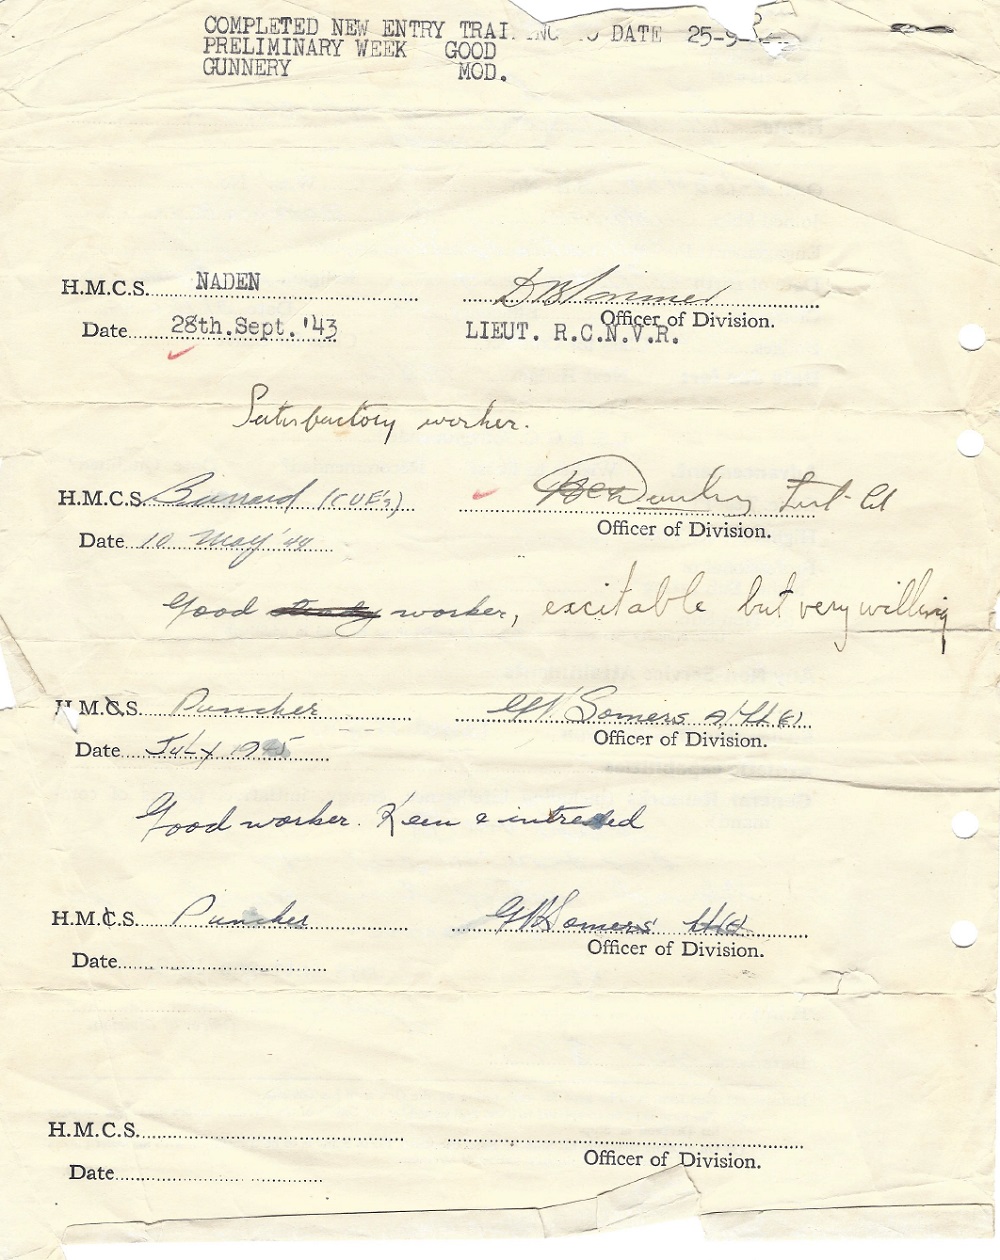 COMPLETED NEW ENTRY TRAI. ING TO DATE 25-9-
PRELIMINARY WEEK GOOD
GUNNERY MOD.
H.M.C.S. NADEN
Officer of Division.
Date 28th.Sept.'43 LIEUT. R.C.N.V.R.
Satisfactory worker.
H.M.C.S.
Officer of Division.
Date 10 May '44
Good steady worker, excitable but very willing
H.M.C.S. Puncher G.W. Somers
Officer of Division.
Date July 1945
Good worker. Keen & intrested
H.M.C.S. Puncher GWSomers
Officer of Division.
Date
H.M.C.S.
Officer of Division.
Date